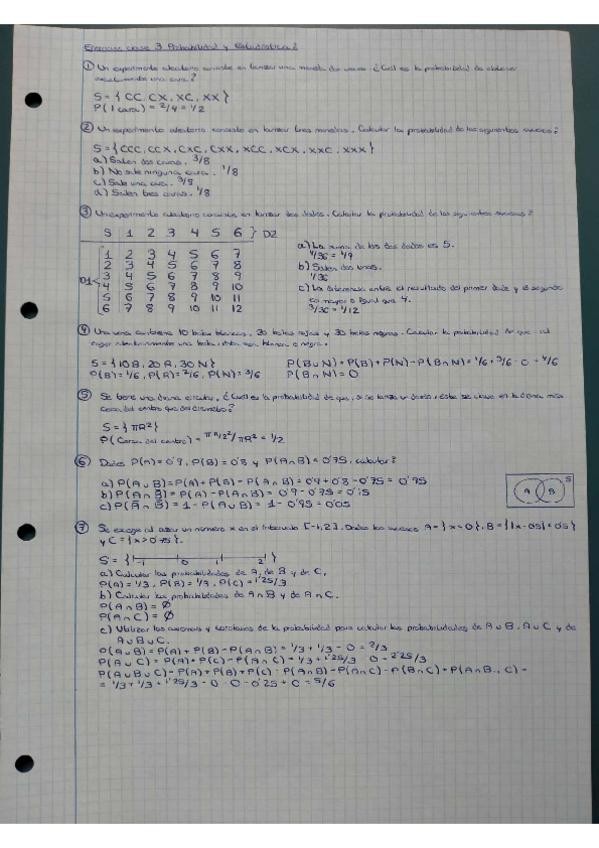 Ejercicios clase 3 Probabilidad y Estadística 2
① Un experimento aleatorio consiste en lanzar una moneda dos veces ¿Cuál es la probabilidad de obtener
exactamente una cara?
S = { CC, CX, XC, XX }
P( 1 cara) = 2/4 = 1/2
② Un experimento aleatorio consiste en lanzar tres monedas. Calcular la probabilidad de los siguientes sucesos:
S = { CCC, CCX, CXC, CXX, XCC, XCX, XXC, XXX }
a) Salen dos caras. 3/8
b) No sale ninguna cara. 1/8
c) Sale una cara. 3/8
d) Salen tres caras. 1/8
③ Un experimento aleatorio consiste en lanzar dos dados. Calcular la probabilidad de los siguientes sucesos?
S 1 2 3 4 5 6 } D2
D1
1 2 3 4 5 6 7
2 3 4 5 6 7 8
3 4 5 6 7 8 9
4 5 6 7 8 9 10
5 6 7 8 9 10 11
6 7 8 9 10 11 12
a) La suma de los dos dados es 5.
4/36 = 1/9
b) Salen dos unos.
1/36
c) La diferencia entre el resultado del primer dado y el segundo
es mayor o igual que 4.
3/36 = 1/12
④ Una urna contiene 10 bolas blancas, 20 bolas rojas y 30 bolas negras. Calcular la probabilidad de que al
coger aleatoriamente una bola, sea blanca o negra.
S = { 10 B, 20 R, 30 N }
P(B) = 1/6, P(R) = 2/6, P(N) = 3/6
P(B ∪ N) = P(B) + P(N) - P(B ∩ N) = 1/6 + 3/6 - 0 = 4/6
P(B ∩ N) = 0
⑤ Se tiene una diana circular. ¿Cuál es la probabilidad de que, si se lanza un dardo, éste se clave en la diana más
cerca del centro que del perímetro?
S = { πR² }
P( Cerca del centro) = πR²/2²/πR² = 1/2
⑥ Dados P(A) = 0'9, P(B) = 0'8 y P(A ∩ B) = 0'75, calcular?
a) P(A ∪ B) = P(A) + P(B) - P(A ∩ B) = 0'9 + 0'8 - 0'75 = 0'95
b) P(A ∩ B̄) = P(A) - P(A ∩ B) = 0'9 - 0'75 = 0'15
c) P(Ā ∩ B̄) = 1 - P(A ∪ B) = 1 - 0'95 = 0'05
S
A B
⑦ Se escoge al azar un número x en el intervalo [-1, 2]. Dados los sucesos A = { x < 0 }, B = { |x - 0'5| < 0'5 }
y C = { x > 0'75 }.
S = { -1 0 1 2 }
a) Calcular las probabilidades de A, de B y de C.
P(A) = 1/3, P(B) = 1/3, P(C) = 1'25/3
b) Calcular las probabilidades de A ∩ B y de A ∩ C.
P(A ∩ B) = Ø
P(A ∩ C) = Ø
c) Utilizar los axiomas y corolarios de la probabilidad para calcular las probabilidades de A ∪ B, A ∪ C y de
A ∪ B ∪ C.
P(A ∪ B) = P(A) + P(B) - P(A ∩ B) = 1/3 + 1/3 - 0 = 2/3
P(A ∪ C) = P(A) + P(C) - P(A ∩ C) = 1/3 + 1'25/3 - 0 = 2'25/3
P(A ∪ B ∪ C) = P(A) + P(B) + P(C) - P(A ∩ B) - P(A ∩ C) - P(B ∩ C) + P(A ∩ B ∩ C) =
= 1/3 + 1/3 + 1'25/3 - 0 - 0 - 0'25 + 0 = 5/6